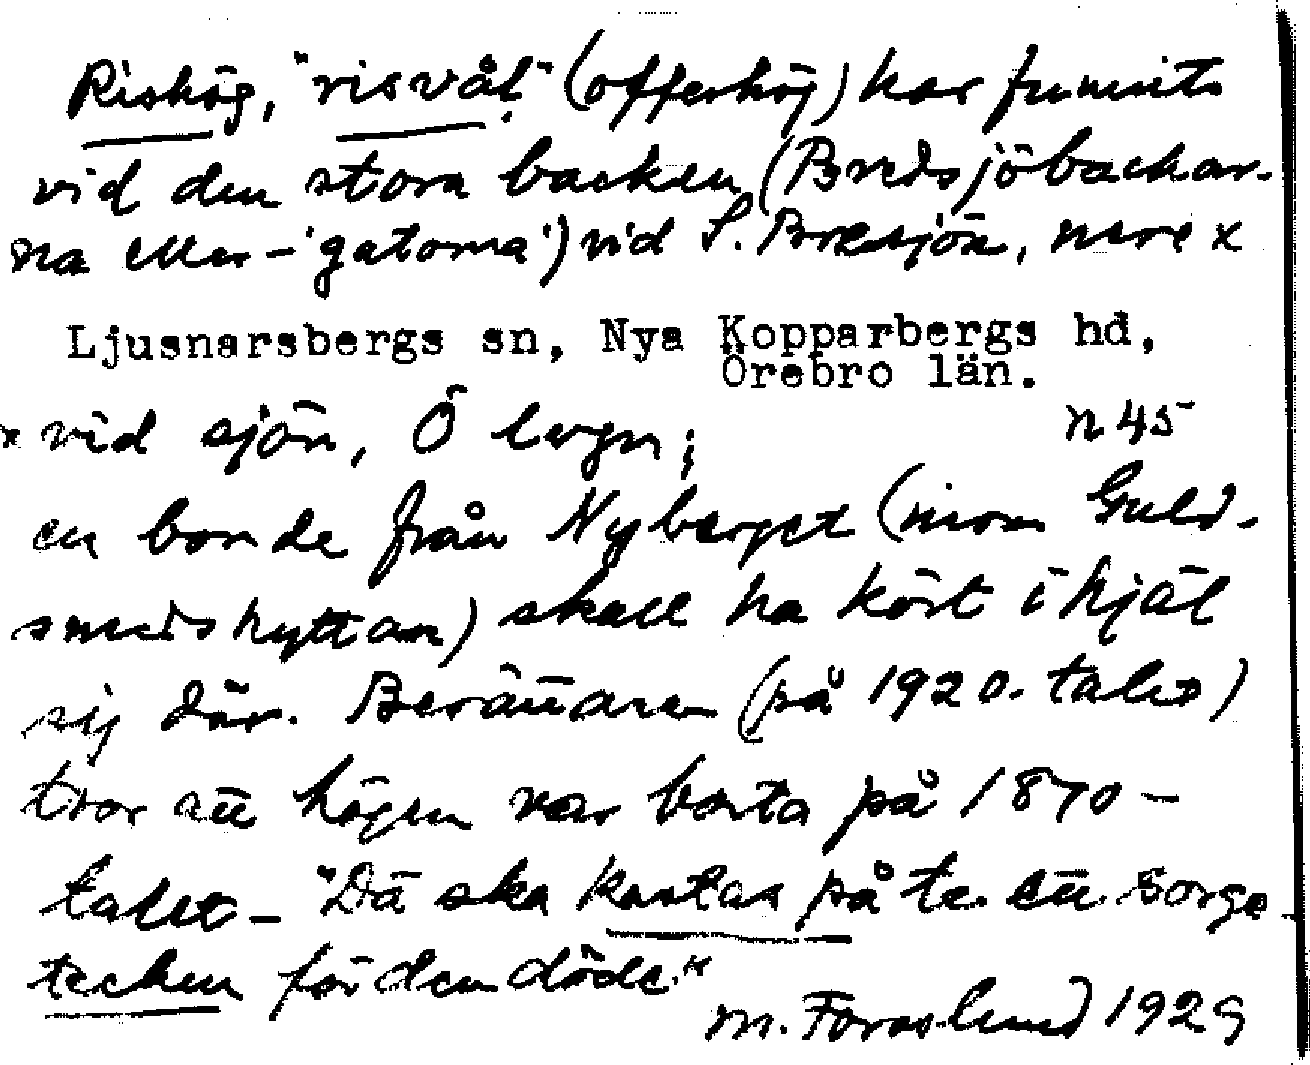 Rishög, "risvål" (offerhög) har funnits
vid den stora backen (Bredsjöbackar-
na eller -'gatorna') vid S. Bredsjön, nere x
Ljusnarsbergs sn, Nya Kopparbergs hd,
Örebro län.
x vid sjön, Ö
n 45
en bonde från Nyberget (inom Guld-
smedshyttan) skall ha kört ihjäl
sig där. Berättaren (på 1920-talet)
tror att högen var borta på 1870-
talet - "Dä ska kastas på te ett sorge-
tecken för den döde."
M. Forslund 1929